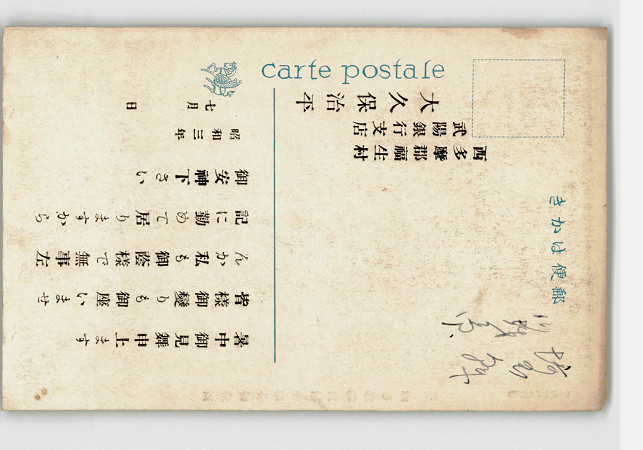 carte postale
郵便はかき
西多摩郡福生村
武陽銀行支店
大久保治平
暑中御見舞申上ます
皆樣御變りも御座いませ
んか私も御蔭樣で無事左
記に勤めて居りますから
御安神下さい
昭和三年
七月 日